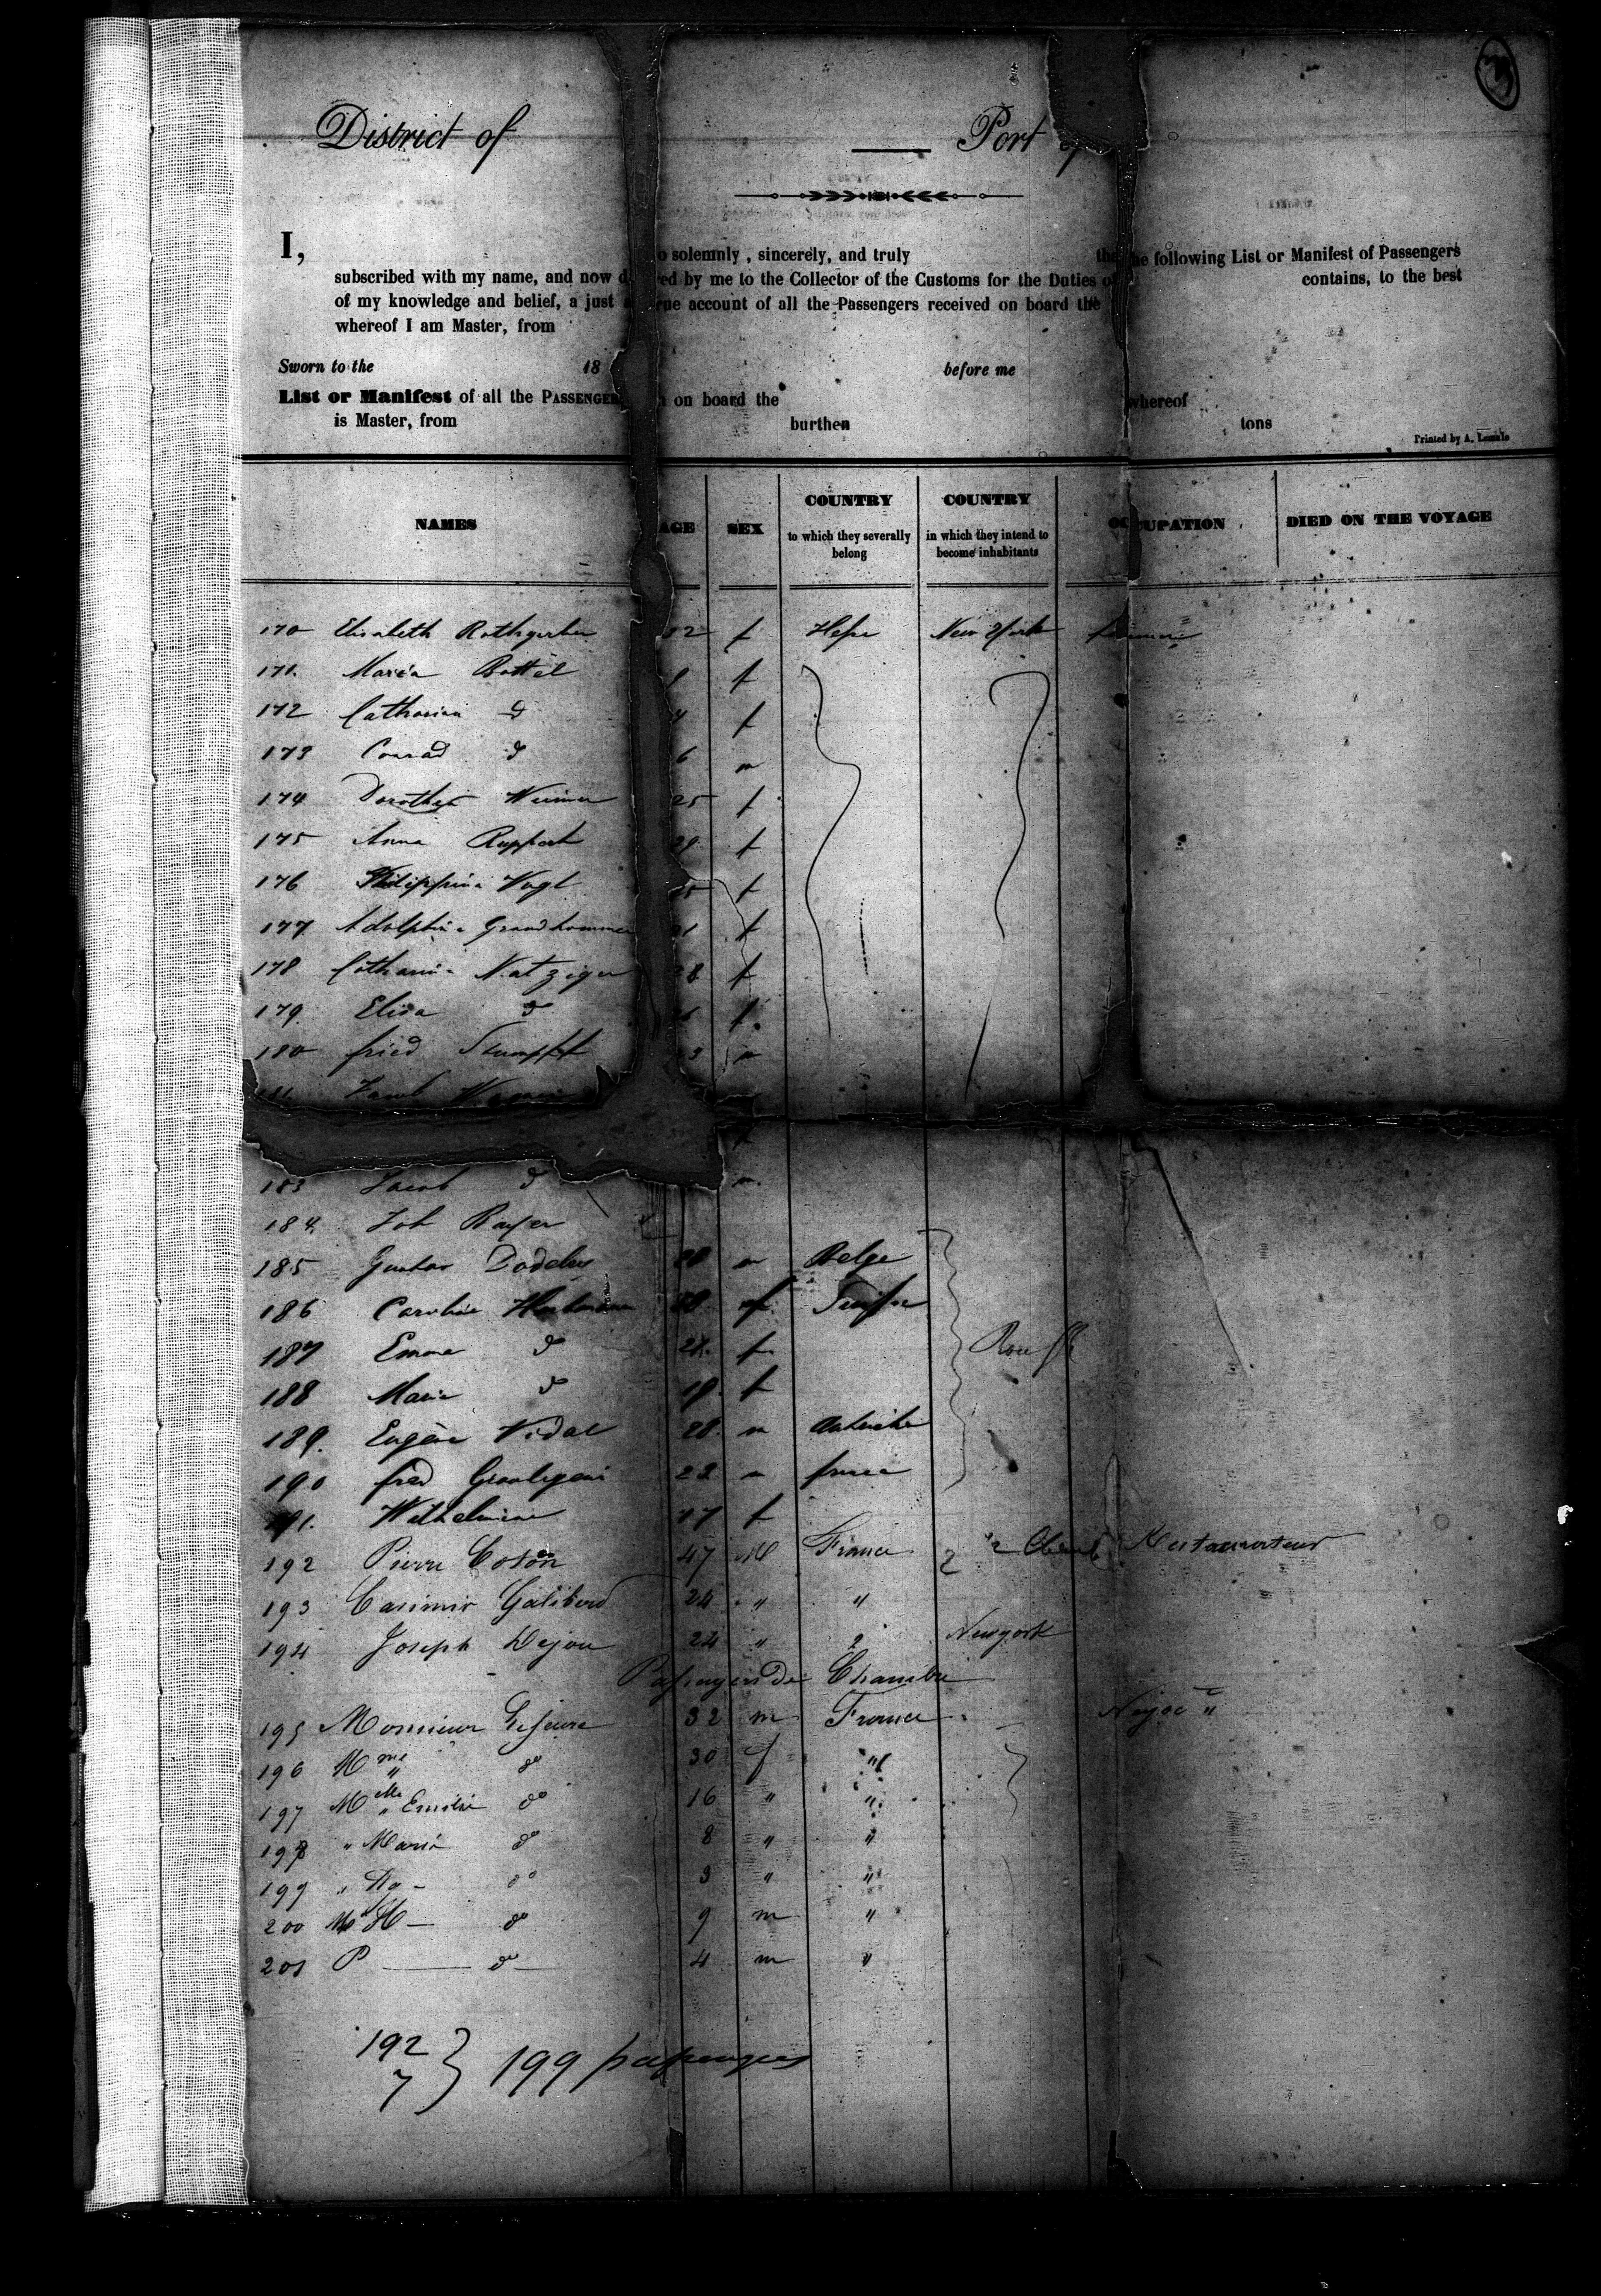 3
District of Port of
I, o solemnly, sincerely, and truly the he following List or Manifest of Passengers
subscribed with my name, and now d red by me to the Collector of the Customs for the Duties of contains, to the best
of my knowledge and belief, a just a rue account of all the Passengers received on board the
whereof I am Master, from
Sworn to the 18 before me
List or Manifest of all the PASSENGER n on board the whereof
is Master, from burthen tons
Printed by A. Lemale
NAMES AGE SEX COUNTRY to which they severally belong COUNTRY in which they intend to become inhabitants OCCUPATION DIED ON THE VOYAGE
170 Elisabeth Rothgerber 32 f Hesse New York
171. Maria Bottel 9 f
172 Catharina do 4 f
173 Conrad do 6 m
174 Dorothea Weimer 25 f
175 Anna Ruppert 29 f
176 Philippina Vogt 25 f
177 Adolphine Grandhomme 21 f
178 Catharina Natziger 28 f
179. Elisa do f.
180 fried Stumpff m
181 Jacob
183 Jacob do m.
184. Joh
185 Gustav 28 m Belge
186 Caroline f Suisse
187 Emma do 21. f
188 Marie do 19. f
189. Eugène Vidal 28. m Autriche
190 fred 22 m
191. Wilhelmine 17 f
192 Pierre Coson 47 M France 2 2 Chamb Restaurateur
193 Casimir Galibert 24 " "
194 Joseph Dejou 24 " 2 Newyork
Passagers de Chambre
195 Monsieur Lefevre 32 m France Negoct "
196 Mme " do 30 f "
197 Melle " Emilie do 16 " "
198 " Marie do 8 " "
199 " do 3 " "
200 M H — do 9 m "
201 P — do 4 m "
192
7 } 199 passengers